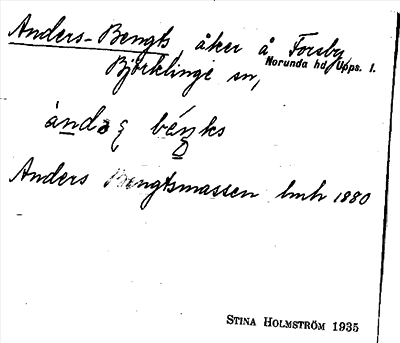 Anders-Bengts, åker å Forsby,
Norunda hd, Upps. l.
Björklinge sn,
Anders Bengtsmassen lmh 1880
STINA HOLMSTRÖM 1935